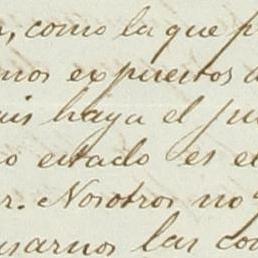 , como la que p
mos expuestos a
ais haya el ju
o estado es el
r. Nosotros no q
usarnos las co